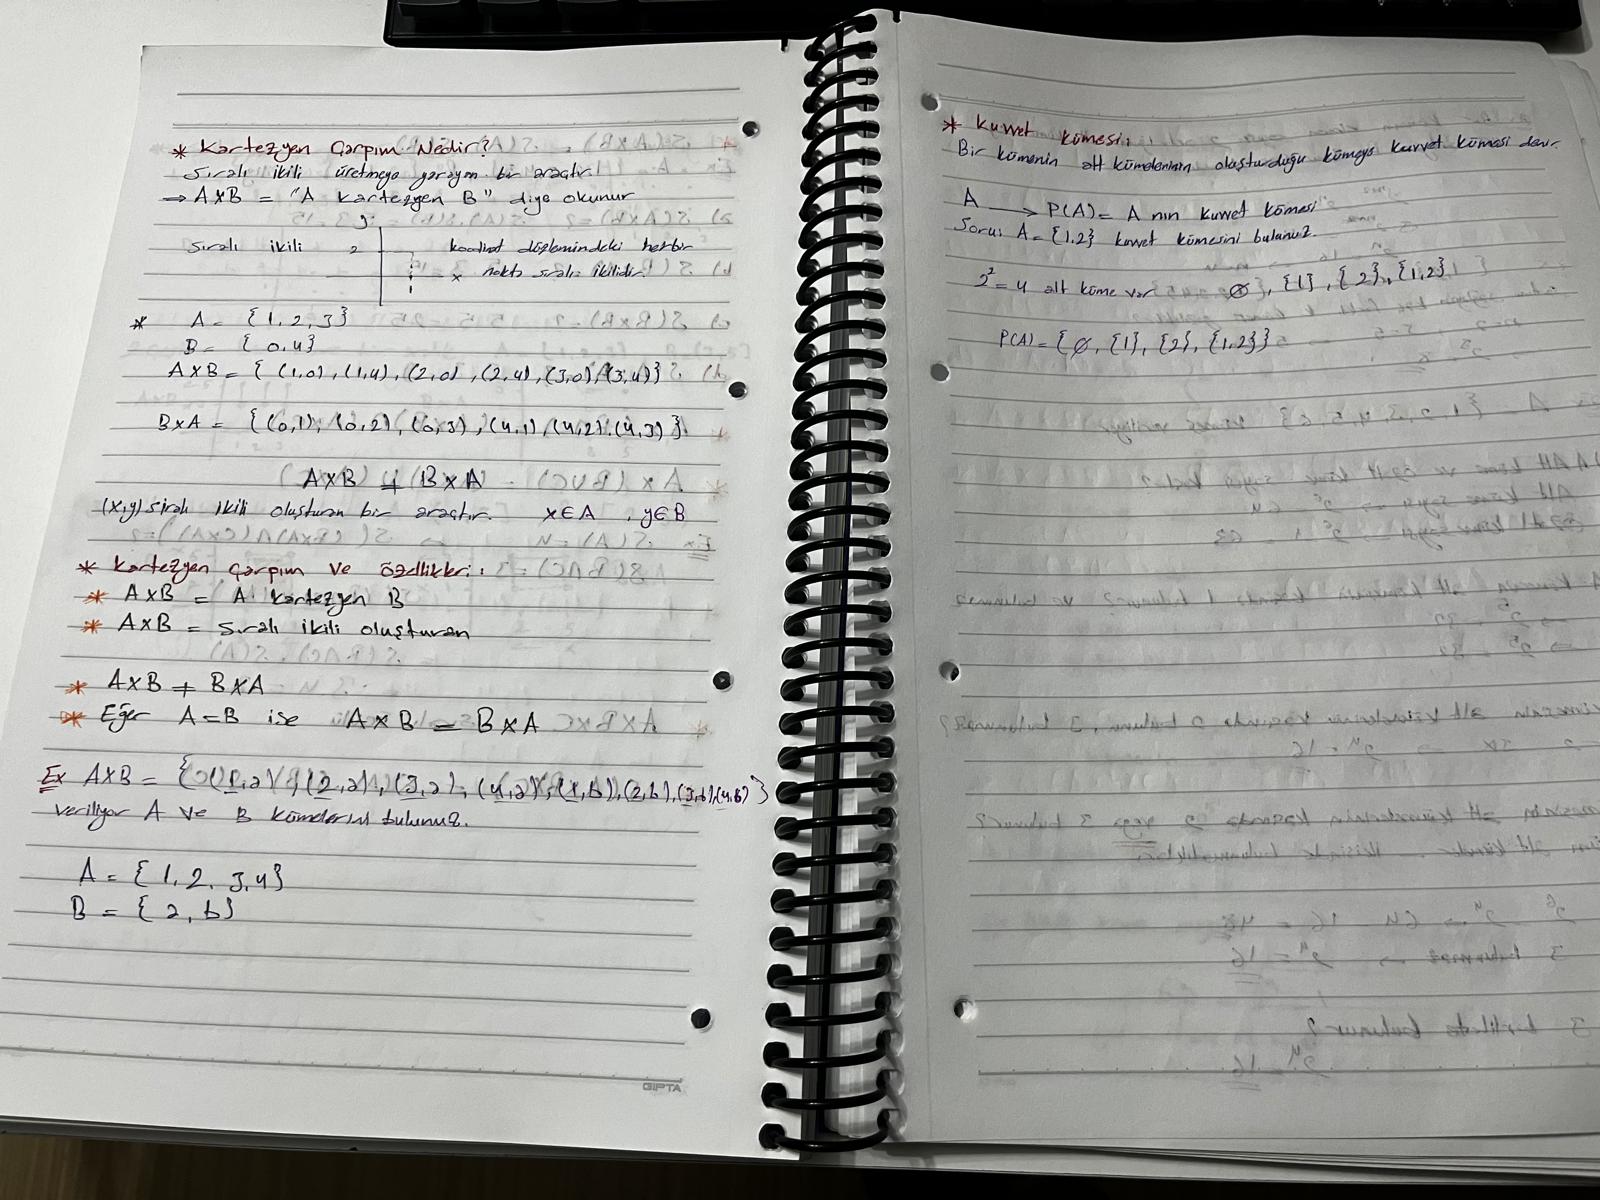 * Kartezyen Çarpım Nedir?
Sıralı ikili üretmeye yarayan bir araçtır.
→ AxB = "A kartezyen B" diye okunur
y
Sıralı ikili 2 koordinat düzlemindeki herbir
x nokta sıralı ikilidir.
* A = {1,2,3}
B = {0,4}
AxB = { (1,0), (1,4), (2,0), (2,4), (3,0), (3,4)}
BxA = {(0,1), (0,2), (0,3), (4,1), (4,2), (4,3)}
AxB ≠ BxA
(x,y) sıralı ikili oluşturan bir araçtır. x∈A , y∈B
* Kartezyen Çarpım ve özellikleri:
* AxB = A kartezyen B
* AxB = sıralı ikili oluşturan
* AxB ≠ BxA
* Eğer A=B ise AxB = BxA
Ex AxB = {(1,a), (2,a), (3,a), (4,a), (1,b), (2,b), (3,b), (4,b)}
veriliyor A ve B kümelerini bulunuz.
A = {1,2,3,4}
B = {a,b}
GIPTA
* Kuvvet kümesi:
Bir kümenin alt kümelerinin oluşturduğu kümeye kuvvet kümesi denir.
A → P(A) = A nın kuvvet kümesi
Soru: A = {1,2} kuvvet kümesini bulunuz.
2² = 4 alt küme var ∅, {1}, {2}, {1,2}
P(A) = {∅, {1}, {2}, {1,2}}